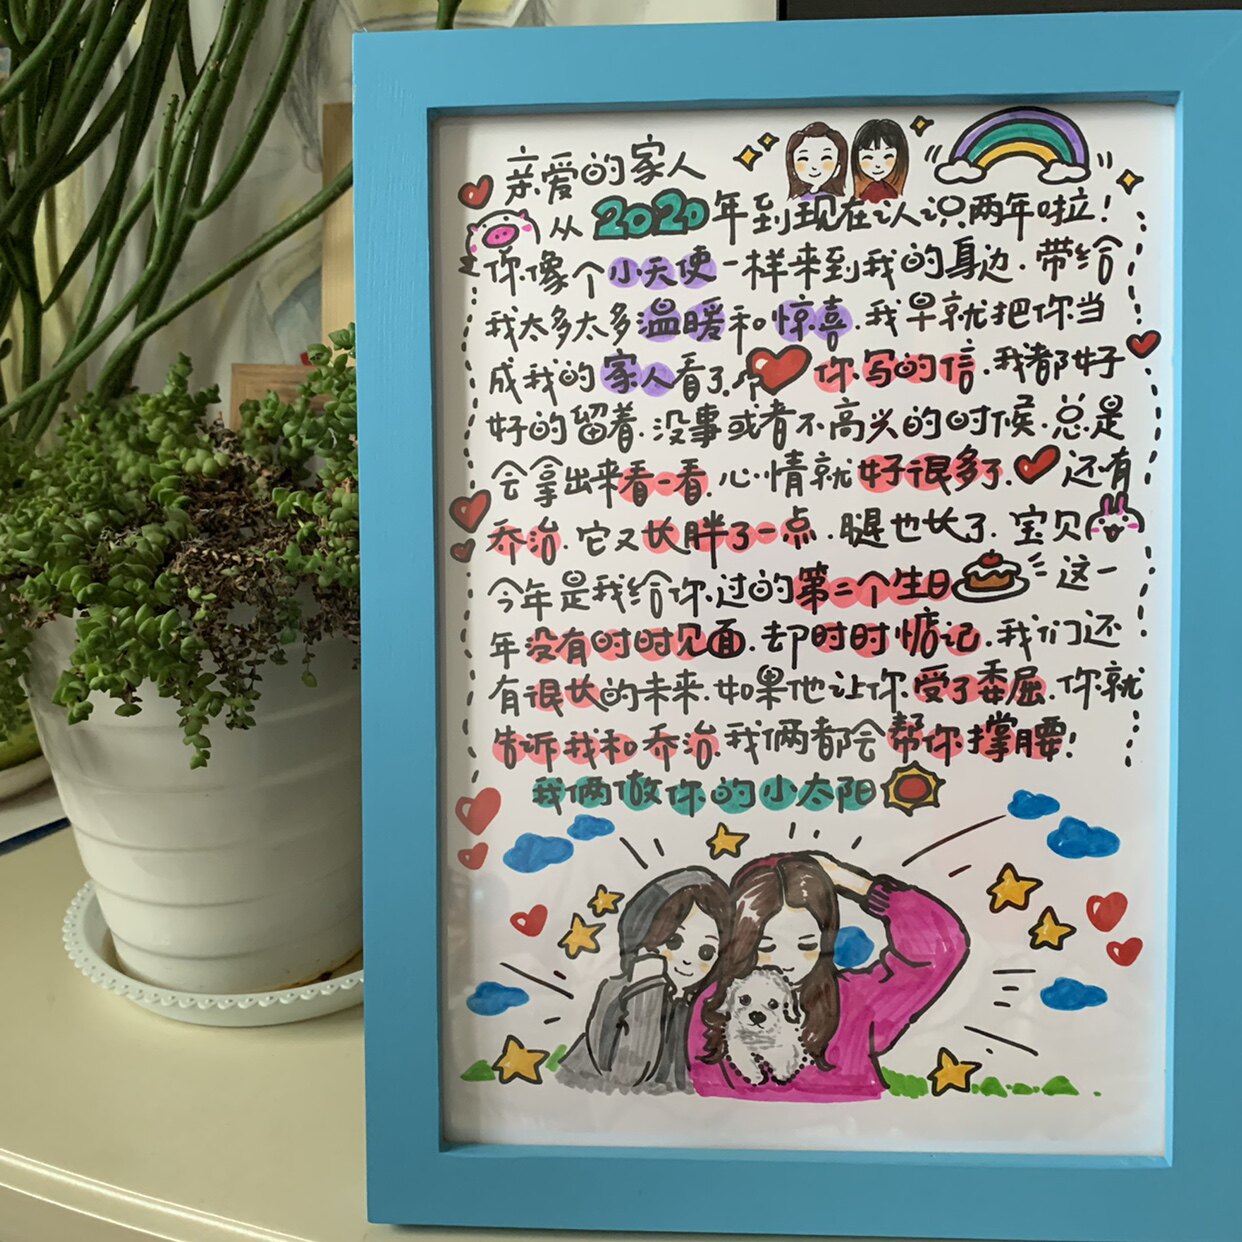 亲爱的家人
从2020年到现在认识两年啦！
你像个小天使一样来到我的身边.带给
我太多太多温暖和惊喜.我早就把你当
成我的家人看了.你写的信.我都好
好的留着.没事或者不高兴的时候.总是
会拿出来看一看.心情就好很多了.还有
乔治.它又长胖了一点.腿也长了.宝贝
今年是我给你过的第二个生日 这一
年没有时时见面.却时时惦记.我们还
有很长的未来.如果他让你受了委屈.你就
告诉我和乔治.我俩都会帮你撑腰!
我俩做你的小太阳